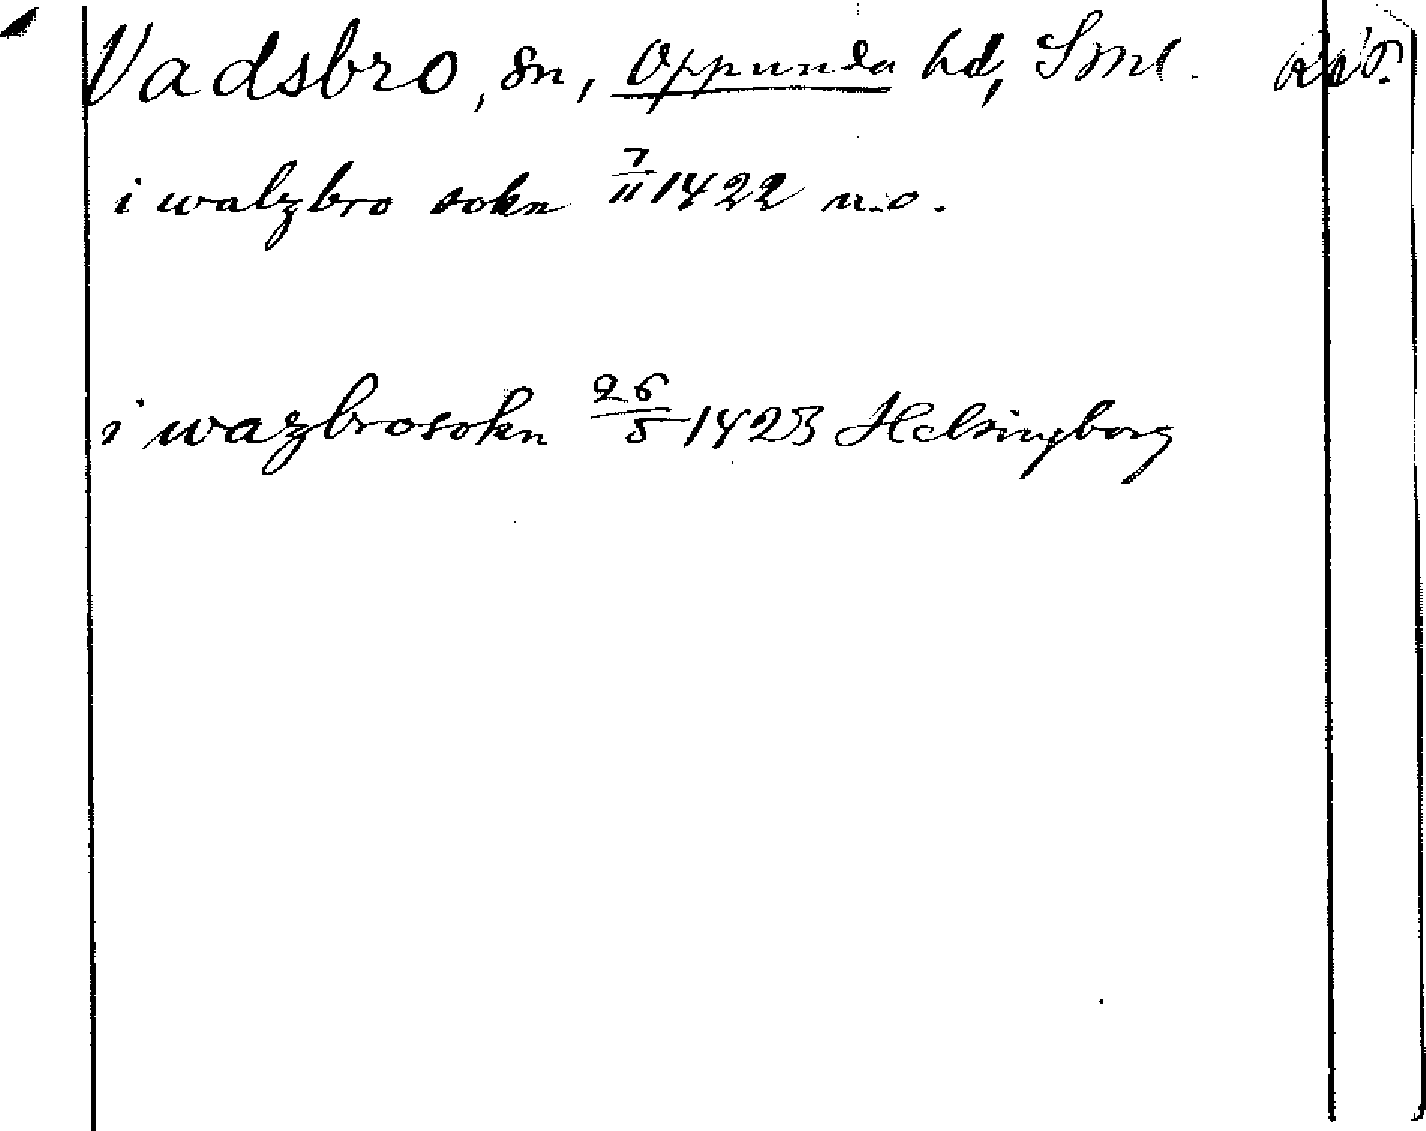 Vadsbro, sn, Oppunda hd, Sml. RAP.
i walzbro sokn 7/11 1422 u.o.
i wazbrosokn 26/5 1423 Helsingborg